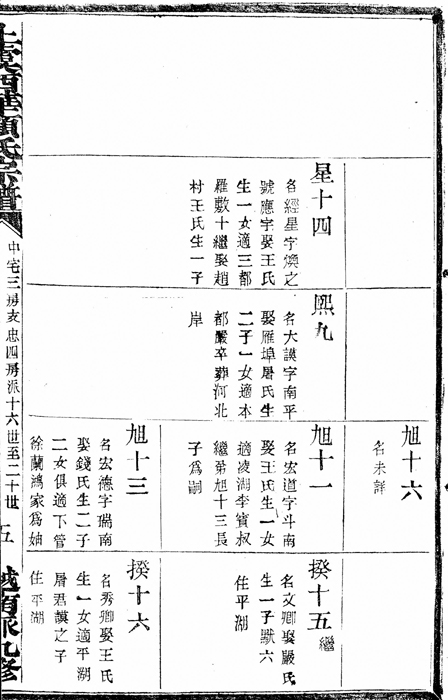 星十四
名經星字煥之
號應字娶王氏
生一女適三都
羅敷十繼娶趙
村王氏生一子
熙九
名大謨字南平
娶雁埠屠氏生
二子一女適本
都嚴卒葬河北
岸
旭十六
名未詳
旭十一
名宏道字斗南
娶王氏生一女
適凌湖李寶叔
繼弟旭十三長
子為嗣
旭十三
名宏德字瑞南
娶錢氏生二子
二女俱適下管
徐蘭鴻家為妯
揆十五 繼
名文卿娶嚴氏
生一子猷六
住平湖
揆十六
名秀卿娶王氏
生一女適平湖
屠君謨之子
住平湖
上虞西華顧氏宗譜
中宅三房友忠四房派十六世至二十世
五